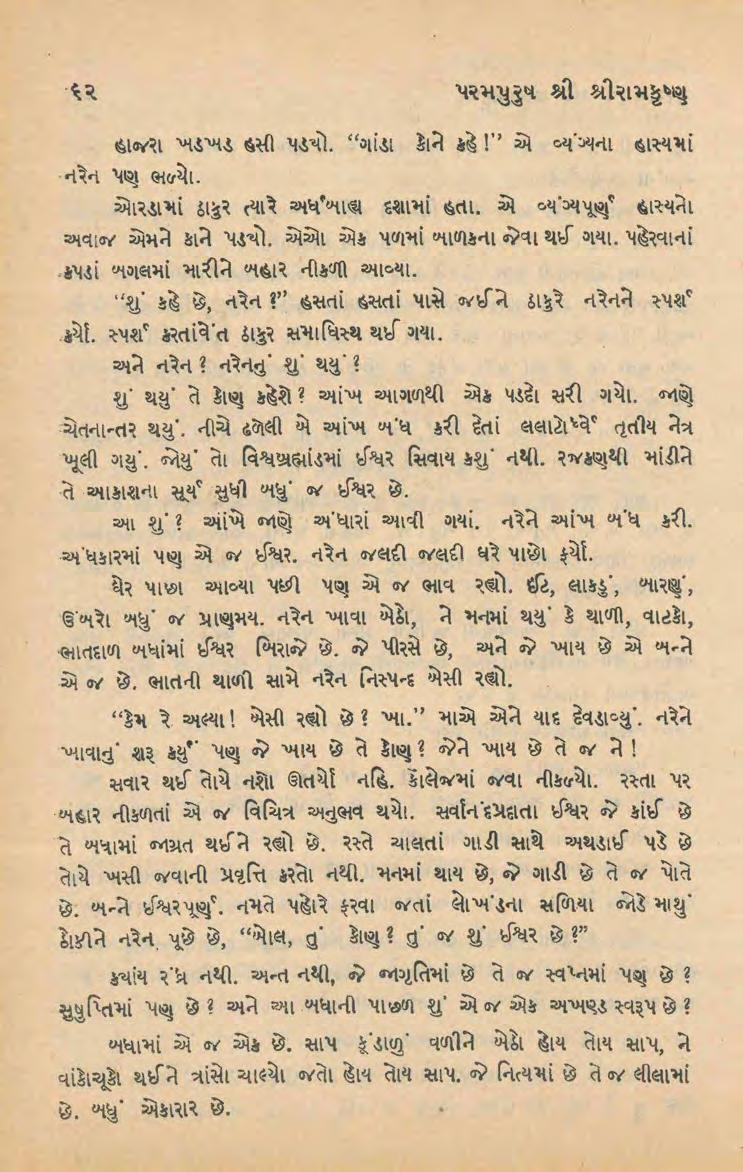 ૬૨ પરમપુરુષ શ્રી શ્રીરામકૃષ્ણ
હાજરા ખડખડ હસી પડ્યો. “ગાંડા કોને કહે !” એ વ્યંગ્યના હાસ્યમાં
નરેન પણ ભળ્યો.
ઓરડામાં ઠાકુર ત્યારે અર્ધબાહ્ય દશામાં હતા. એ વ્યંગ્યપૂર્ણ હાસ્યનો
અવાજ એમને કાને પડ્યો. એઓ એક પળમાં બાળકના જેવા થઈ ગયા. પહેરવાનાં
કપડાં બગલમાં મારીને બહાર નીકળી આવ્યા.
“શું કહે છે, નરેન ?” હસતાં હસતાં પાસે જઈને ઠાકુરે નરેનને સ્પર્શ
કર્યો. સ્પર્શ કરતાંવેંત ઠાકુર સમાધિસ્થ થઈ ગયા.
અને નરેન ? નરેનનું શું થયું ?
શું થયું તે કોણ કહેશે ? આંખ આગળથી એક પડદો સરી ગયો. જાણે
ચેતનાન્તર થયું. નીચે ઢળેલી એ આંખ બંધ કરી દેતાં લલાટોર્ધ્વે તૃતીય નેત્ર
ખૂલી ગયું. જોયું તો વિશ્વબ્રહ્માંડમાં ઈશ્વર સિવાય કશું નથી. રજકણથી માંડીને
તે આકાશના સૂર્ય સુધી બધું જ ઈશ્વર છે.
આ શું ? આંખે જાણે અંધારાં આવી ગયાં. નરેને આંખ બંધ કરી.
અંધકારમાં પણ એ જ ઈશ્વર. નરેન જલદી જલદી ઘરે પાછો ફર્યો.
ઘેર પાછા આવ્યા પછી પણ એ જ ભાવ રહ્યો. ઈંટ, લાકડું, બારણું,
ઉંબરો બધું જ પ્રાણમય. નરેન ખાવા બેઠો, ને મનમાં થયું કે થાળી, વાટકો,
ભાતદાળ બધાંમાં ઈશ્વર બિરાજે છે. જે પીરસે છે, અને જે ખાય છે એ બન્ને
એ જ છે. ભાતની થાળી સામે નરેન નિસ્પન્દ બેસી રહ્યો.
“કેમ રે અલ્યા ! બેસી રહ્યો છે ? ખા.” માએ એને યાદ દેવડાવ્યું. નરેને
ખાવાનું શરૂ કર્યું પણ જે ખાય છે તે કોણ ? જેને ખાય છે તે જ ને !
સવાર થઈ તોયે નશો ઊતર્યો નહિ. કૉલેજમાં જવા નીકળ્યો. રસ્તા પર
બહાર નીકળતાં એ જ વિચિત્ર અનુભવ થયો. સર્વાનંદપ્રદાતા ઈશ્વર જે કાંઈ છે
તે બધામાં જાગ્રત થઈને રહ્યો છે. રસ્તે ચાલતાં ગાડી સાથે અથડાઈ પડે છે
તોયે ખસી જવાની પ્રવૃત્તિ કરતો નથી. મનમાં થાય છે, જે ગાડી છે તે જ પોતે
છે. બન્ને ઈશ્વરપૂર્ણ. નમતે પહોરે ફરવા જતાં લોખંડના સળિયા જોડે માથું
ઠોકીને નરેન પૂછે છે, “બોલ, તું કોણ ? તું જ શું ઈશ્વર છે ?”
ક્યાંય રંધ્ર નથી. અન્ત નથી, જે જાગૃતિમાં છે તે જ સ્વપ્નમાં પણ છે ?
સુષુપ્તિમાં પણ છે ? અને આ બધાની પાછળ શું એ જ એક અખણ્ડ સ્વરૂપ છે ?
બધામાં એ જ એક છે. સાપ કૂંડાળું વળીને બેઠો હોય તોય સાપ, ને
વાંકોચૂકો થઈને ત્રાંસો ચાલ્યો જતો હોય તોય સાપ. જે નિત્યમાં છે તે જ લીલામાં
છે. બધું એકાકાર છે.